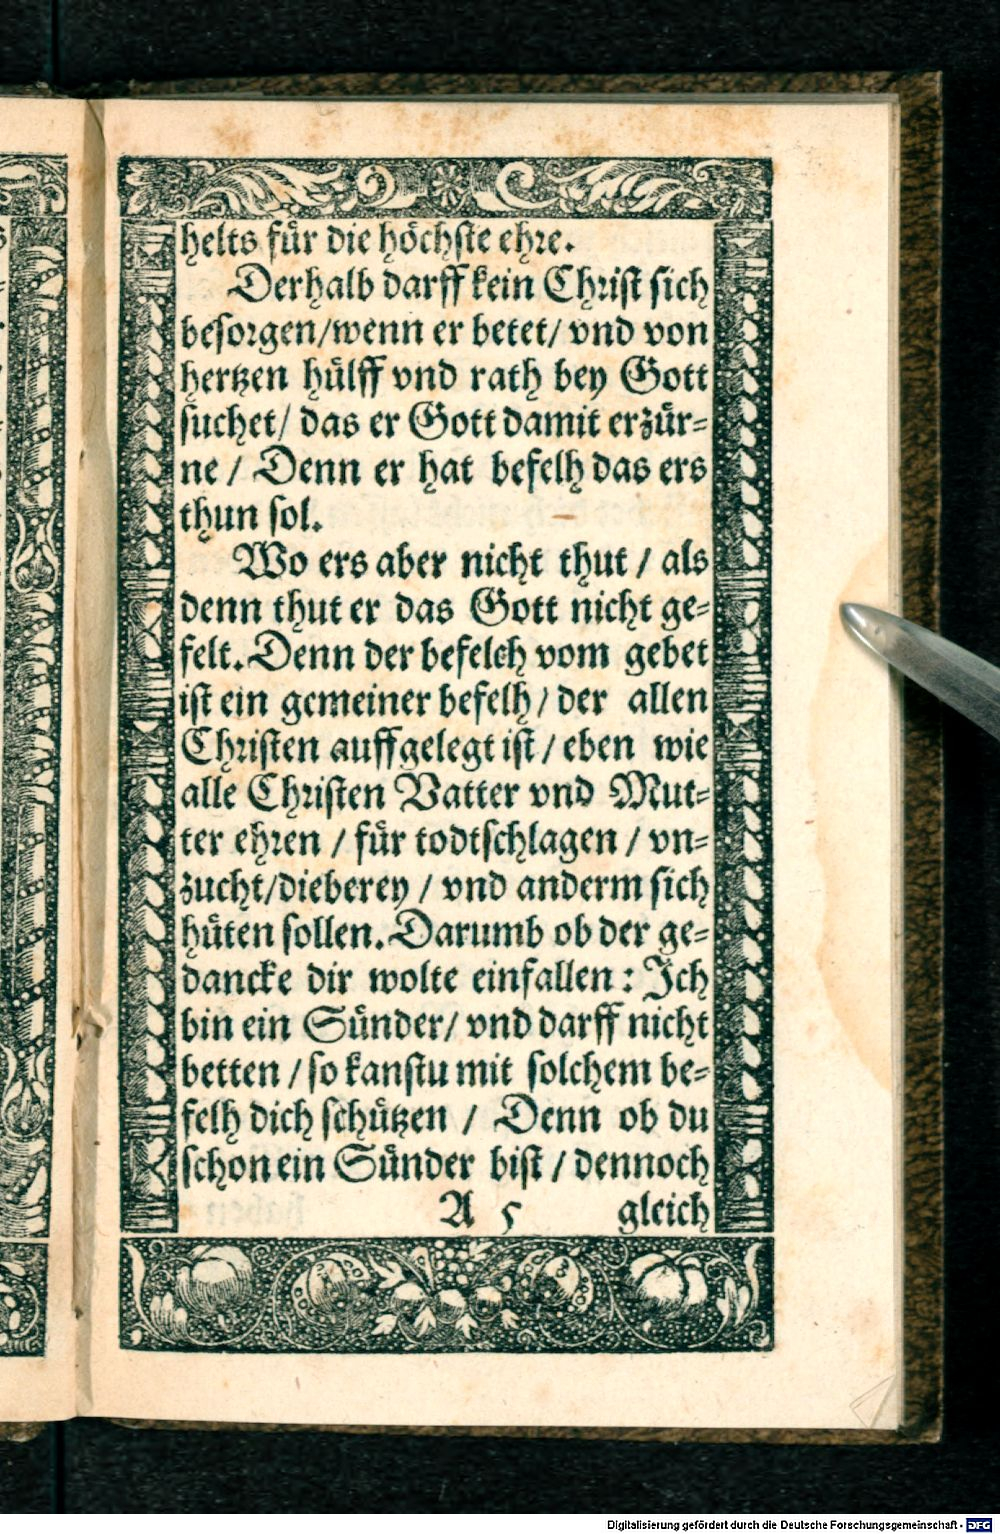 helts für die höchste ehre.
Derhalb darff kein Christ sich
besorgen/wenn er betet/ vnd von
hertzen hülff vnd rath bey Gott
suchet/ das er Gott damit erzür=
ne / Denn er hat befelh das ers
thun sol.
Wo ers aber nicht thut / als
denn thut er das Gott nicht ge=
felt. Denn der befelch vom gebet
ist ein gemeiner befelh / der allen
Christen auffgelegt ist / eben wie
alle Christen Vatter vnd Mut=
ter ehren / für todtschlagen / vn=
zucht/dieberey / vnd anderm sich
hüten sollen. Darumb ob der ge=
dancke dir wolte einfallen: Ich
bin ein Sünder/ vnd darff nicht
betten / so kanstu mit solchem be=
felh dich schützen / Denn ob du
schon ein Sünder bist / dennoch
A 5 gleich
Digitalisierung gefördert durch die Deutsche Forschungsgemeinschaft - DFG